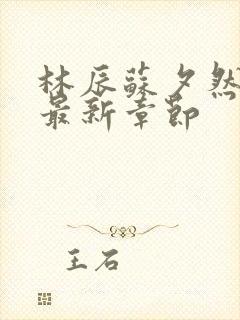 林辰蘇夕然
最新章節
王石